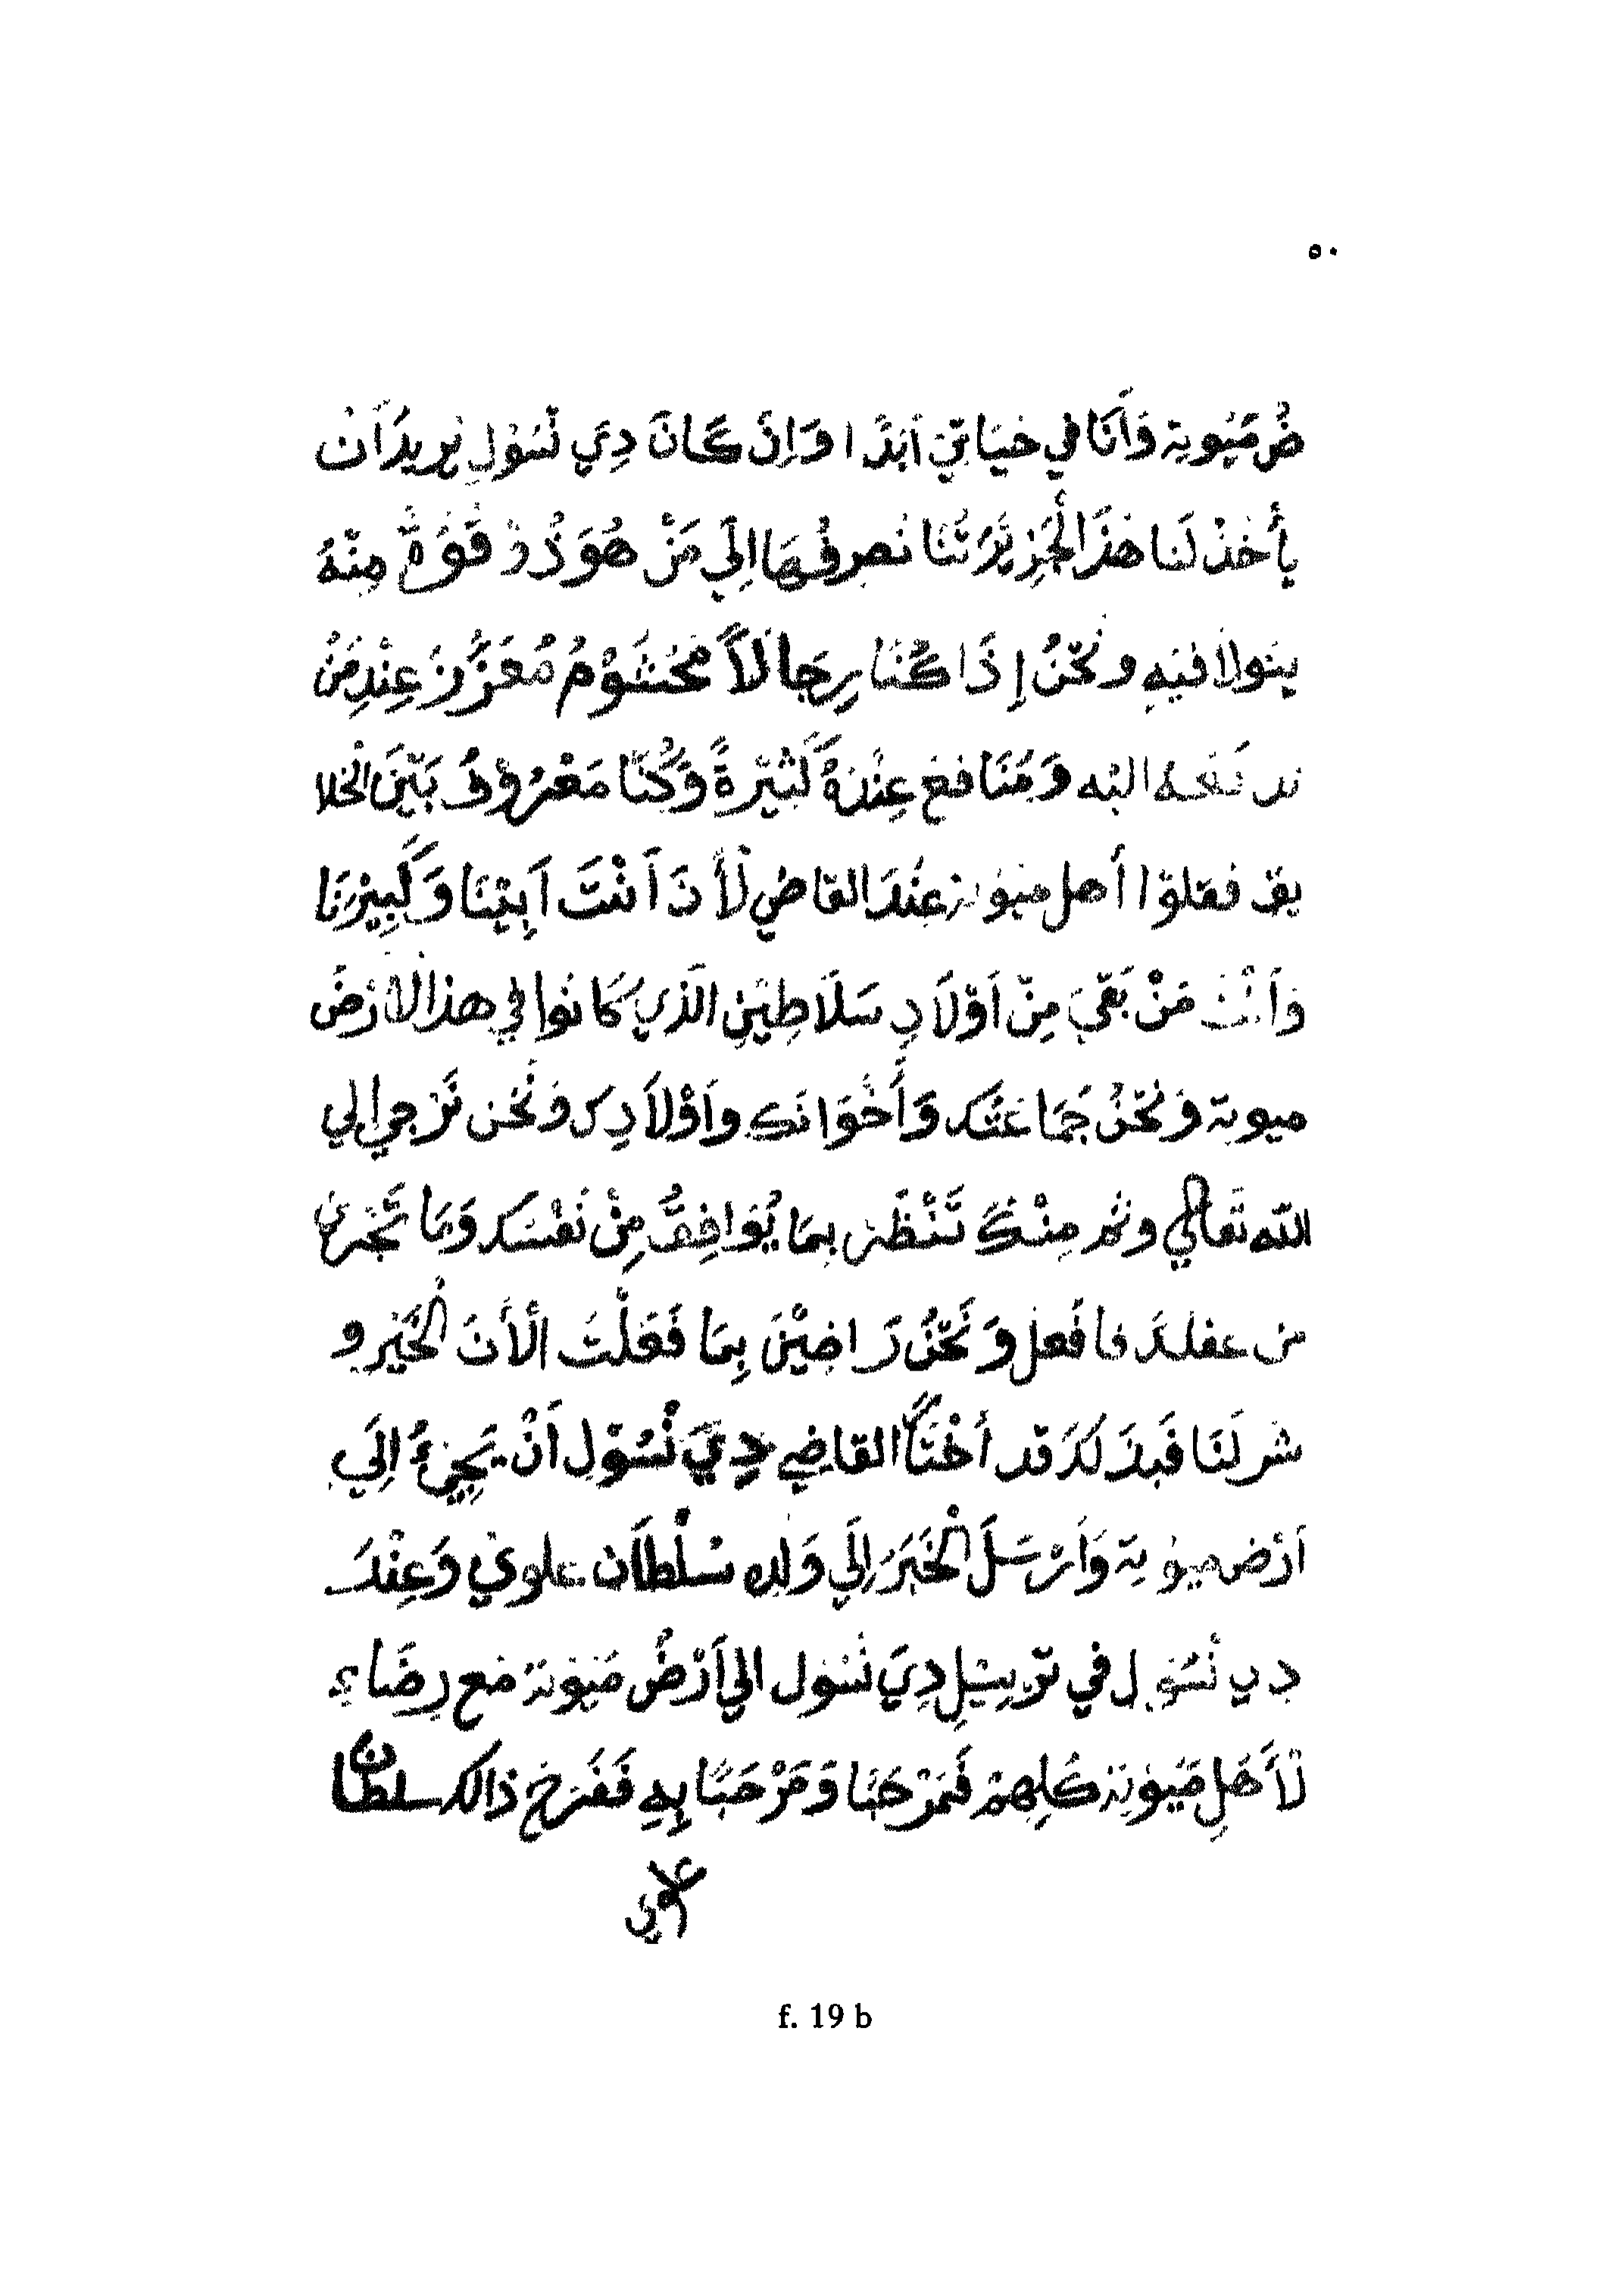 ٥٠
ضُ مَيُوتِة وَأَنَا فِي حَيَاتِيْ أَبَدًا وَاِنْ كَانَ دِيْ نْسُوْلِ يُرِيدُ اَنْ
يأْخُذْ لَنا هَذَا الْجَزِيْرَتُنَا نُصرِفُهَا اِلَي مَنْ هُوَ ذُوْ قُوَّمٌ مِنْهُ
يتولا فيْهِ ونَحْنُ إِذَا كُنَّا رِجَالاً مُحْشَوْمُ مُعَزَّزْ عِنْدِ مَنْ
ندفعهُ اليْه وَمَنَافعْ عِنْدَهُ كَثِيْرَةً وَكُنَّا مَعْرُوْفُ بَيْنَ الْخلا
يق فقلوْا أهل ميوتة عِنْدَ القاضِي لْأَنَ اَنْتَ اَبِيْنَا وَكَبِيْرِنَا
وَاَنْتَ مَنْ بَقِيَ مِنْ اَوْلَادِ سَلَاطِيْنِ الَّذِي كَانُوا فِي هذا الْاَرْضُ
ميوتة وَنَحْنُ جَمَاعَتُك وَأَخْوَانَك واَوْلَادِك وَنَحْن نَرْجي الي
الله تَعَالَي وثم مِنْكَ تَنْظُرْ بِمَا يُوَافِقُ مِنْ نَفْسَك وَمَا تَجْرِيْ
من عقلك فافَعل وَنَحْنُ رَاضِيْنَ بِمَا فَعَلْتَ الْأَنَ الْخَيْر و
شر لَنَا فَبِدَلَكَ قد أَخْتَاً القاضِي دِيْ نْسُوْل اَنْ يَجِيْءُ اِلَي
اَرْض ميوتة وَأَرْسَلَ الْخَبَرَ اِلَي وَلده سُلْطَان علوي وَعِنْدَ
دِي نْسُوْل في تَرْبِيْلِ دِيَ نْسُوْل الي اَرْضُ مَيُوتة مع رِضَاءِ
لْأَهْلِ مَيُوتة كُلِهِمْ فَمَرْحَبًا وَمَرْحَبًا بِهِ فَفَرَحَ ذالك سلطان
علوي
f. 19 b